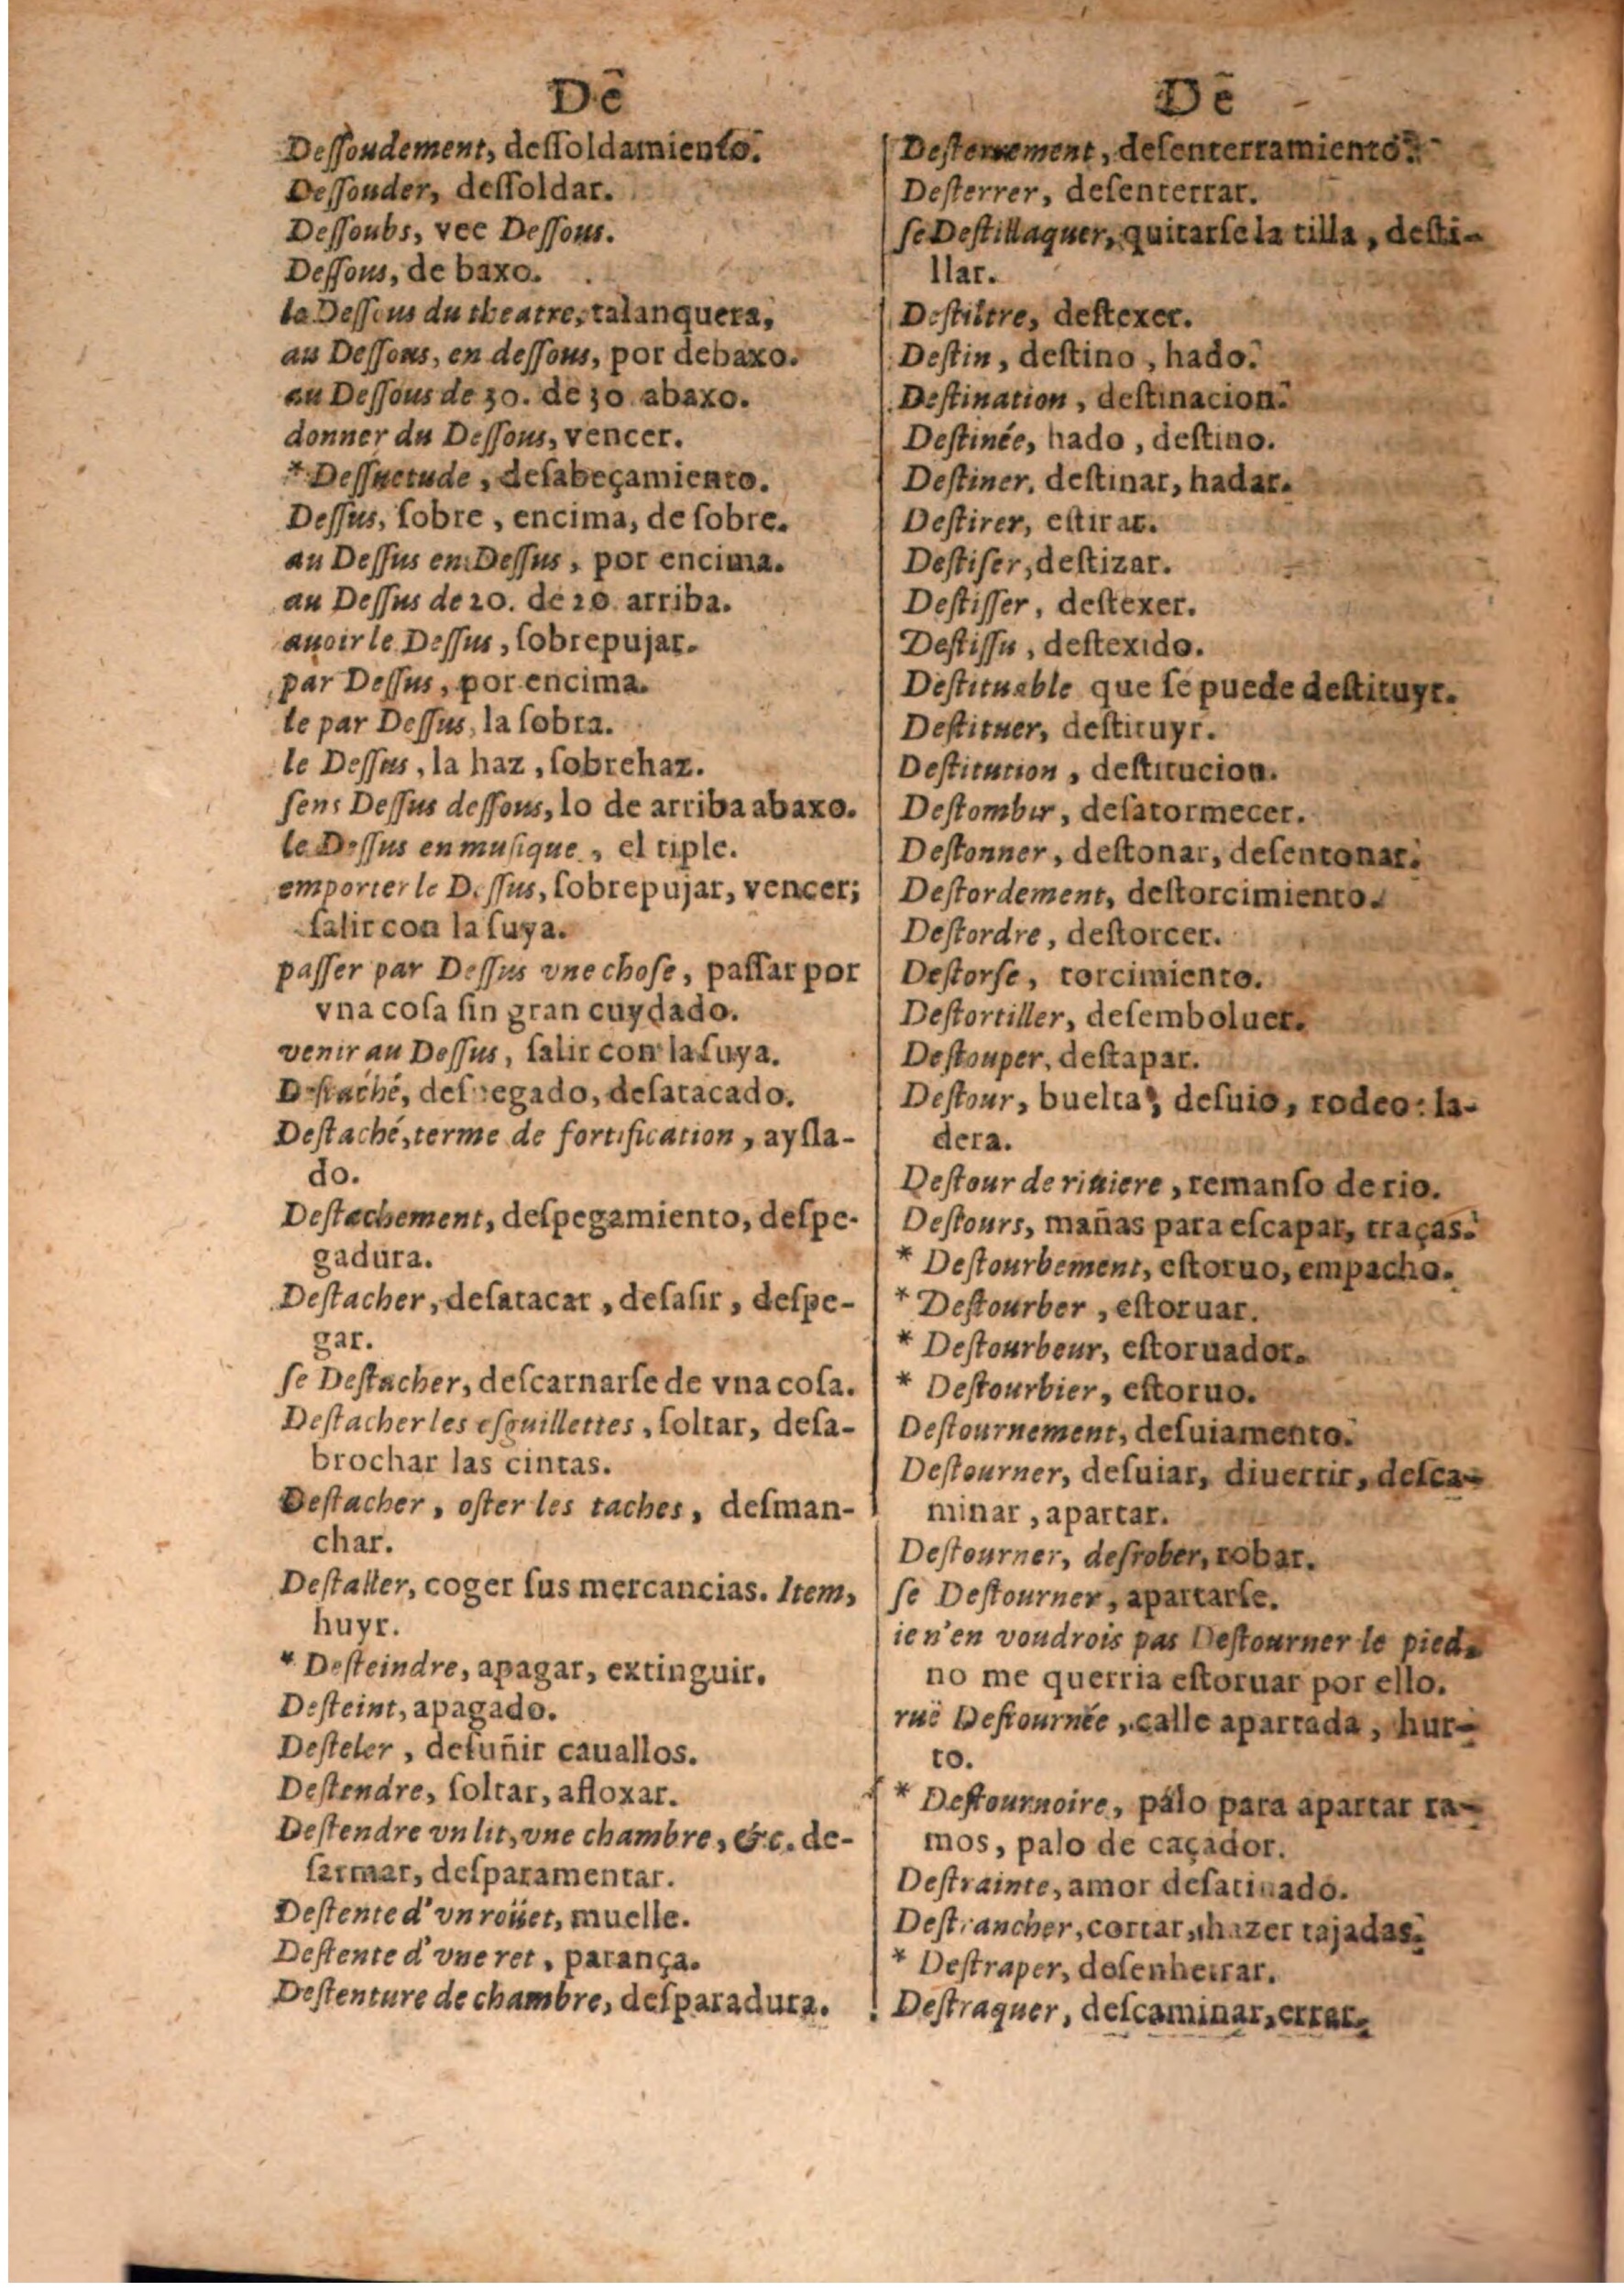 Dē
Deſſoudement, deſſoldamiento.
Deſſouder, deſſoldar.
Deſſoubs, vee Deſſous.
Deſſous, de baxo.
le Deſſous du theatre, talanquera,
au Deſſous, en deſſous, por debaxo.
au Deſſous de 30. de 30 abaxo.
donner du Deſſous, vencer.
* Deſſuetude, deſabeçamiento.
Deſſus, ſobre, encima, de ſobre.
au Deſſus en Deſſus, por encima.
au Deſſus de 20. de 20 arriba.
auoir le Deſſus, ſobrepujar.
par Deſſus, por encima.
le par Deſſus, la ſobra.
le Deſſus, la haz, ſobrehaz.
ſens Deſſus deſſous, lo de arriba abaxo.
le Deſſus en muſique, el tiple.
emporter le Deſſus, ſobrepujar, vencer;
ſalir con la ſuya.
paſſer par Deſſus vne choſe, paſſar por
vna coſa ſin gran cuydado.
venir au Deſſus, ſalir con la ſuya.
Deſtaché, deſpegado, deſatacado.
Deſtaché, terme de fortification, ayſla-
do.
Deſtachement, deſpegamiento, deſpe-
gadura.
Deſtacher, deſatacar, deſaſir, deſpe-
gar.
ſe Deſtacher, deſcarnarſe de vna coſa.
Deſtacher les eſguillettes, ſoltar, deſa-
brochar las cintas.
Deſtacher, oſter les taches, deſman-
char.
Deſtaller, coger ſus mercancias. Item,
huyr.
* Deſteindre, apagar, extinguir.
Deſteint, apagado.
Deſteler, deſuñir cauallos.
Deſtendre, ſoltar, afloxar.
Deſtendre vn lit, vne chambre, &c. de-
ſarmar, deſparamentar.
Deſtente d'vn roüet, muelle.
Deſtente d'vne ret, parança.
Deſtenture de chambre, deſparadura.
Dē
Deſterrement, deſenterramiento.
Deſterrer, deſenterrar.
ſe Deſtillaquer, quitarſe la tilla, deſti-
llar.
Deſtiltre, deſtexer.
Deſtin, deſtino, hado.
Deſtination, deſtinacion.
Deſtinée, hado, deſtino.
Deſtiner, deſtinar, hadar.
Deſtirer, eſtirar.
Deſtiſer, deſtizar.
Deſtiſſer, deſtexer.
Deſtiſſu, deſtexido.
Deſtituable que ſe puede deſtituyr.
Deſtituer, deſtituyr.
Deſtitution, deſtitucion.
Deſtombir, deſatormecer.
Deſtonner, deſtonar, deſentonar.
Deſtordement, deſtorcimiento.
Deſtordre, deſtorcer.
Deſtorſe, torcimiento.
Deſtortiller, deſemboluer.
Deſtouper, deſtapar.
Deſtour, buelta, deſuio, rodeo: la-
dera.
Deſtour de riuiere, remanſo de rio.
Deſtours, mañas para eſcapar, traças.
* Deſtourbement, eſtoruo, empacho.
* Deſtourber, eſtoruar.
* Deſtourbeur, eſtoruador.
* Deſtourbier, eſtoruo.
Deſtournement, deſuiamento.
Deſtourner, deſuiar, diuertir, deſca-
minar, apartar.
Deſtourner, deſrober, robar.
ſe Deſtourner, apartarſe.
ie n'en voudrois pas Deſtourner le pied.
no me querria eſtoruar por ello.
ruë Deſtournée, calle apartada, hur-
to.
* Deſtournoire, palo para apartar ra-
mos, palo de caçador.
Deſtrainte, amor deſatinado.
Deſtrancher, cortar, hazer tajadas.
* Deſtraper, deſenhetrar.
Deſtraquer, deſcaminar, errar.